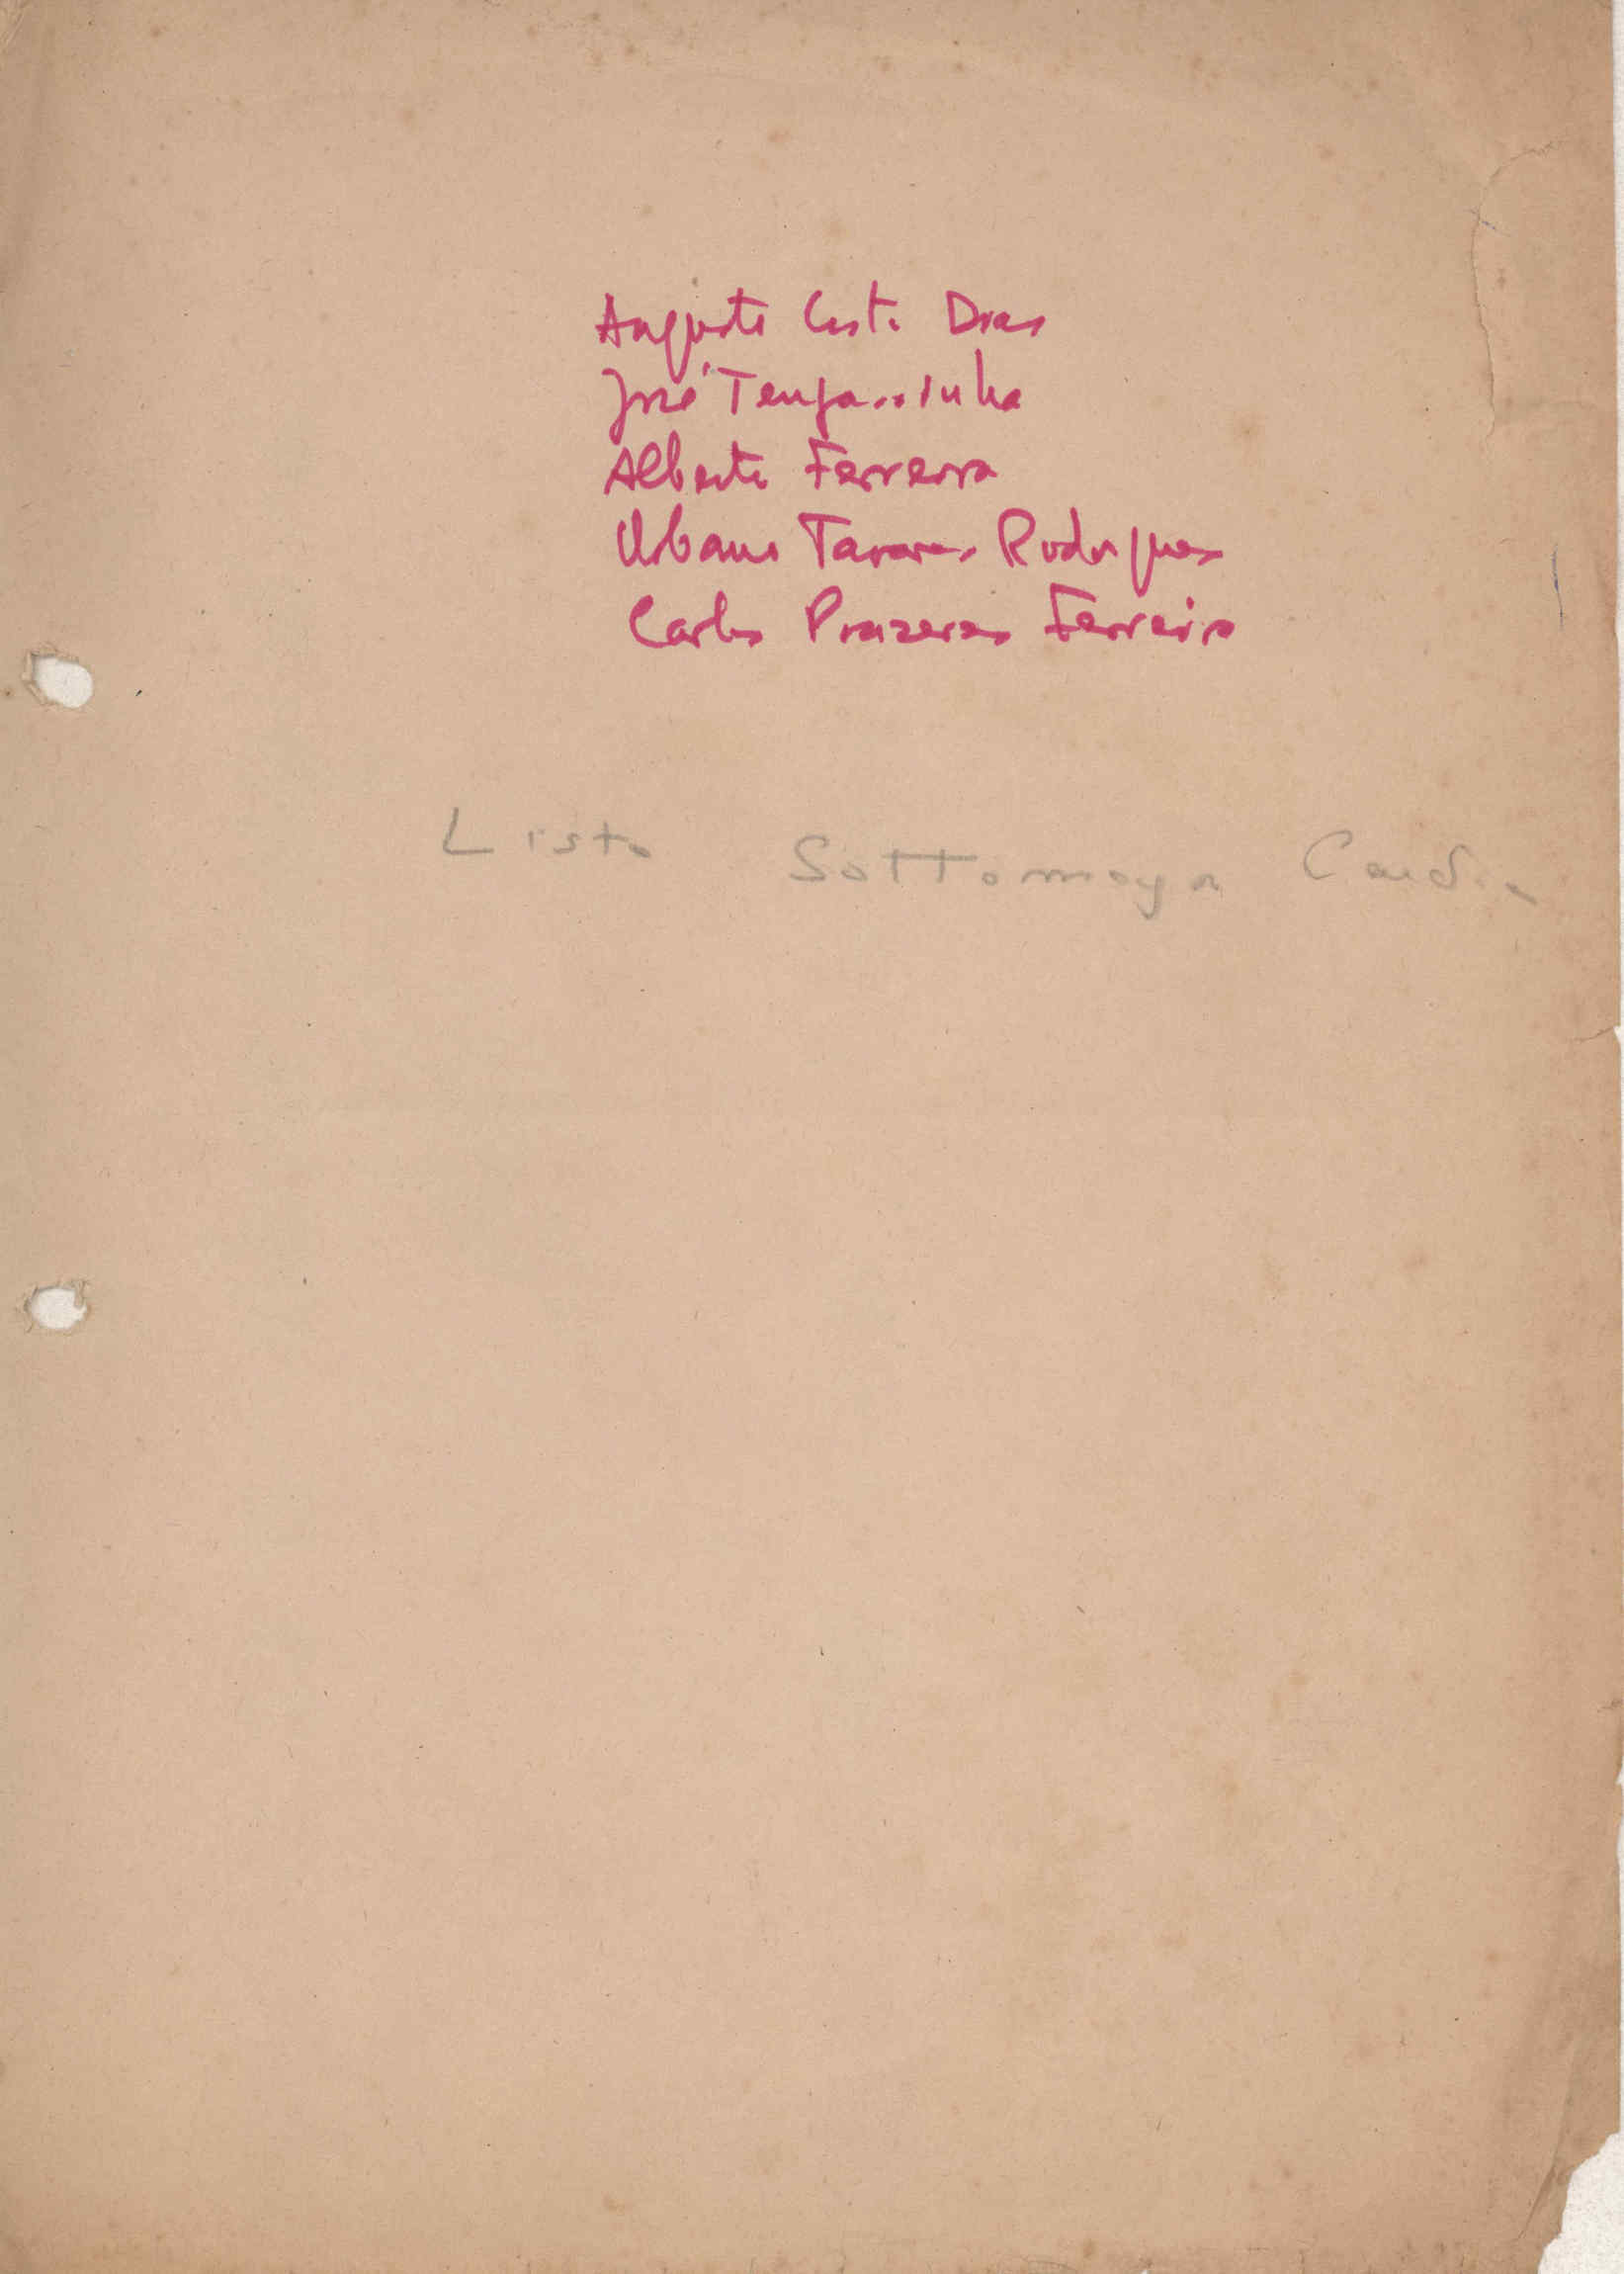 Augusto Costa Dias
José Tengarrinha
Alberto Ferreira
Urbano Tavares Rodrigues
Carlos Prazeres Ferreira
Lista Sottomaya Cardia